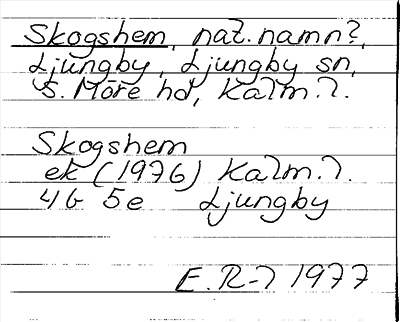 Skogshem, nat.namn?,
Ljungby, Ljungby sn,
S. Möre hd, Kalm.l.
Skogshem
ek (1976) Kalm.l.
4G 5e Ljungby
E.R-n 1977